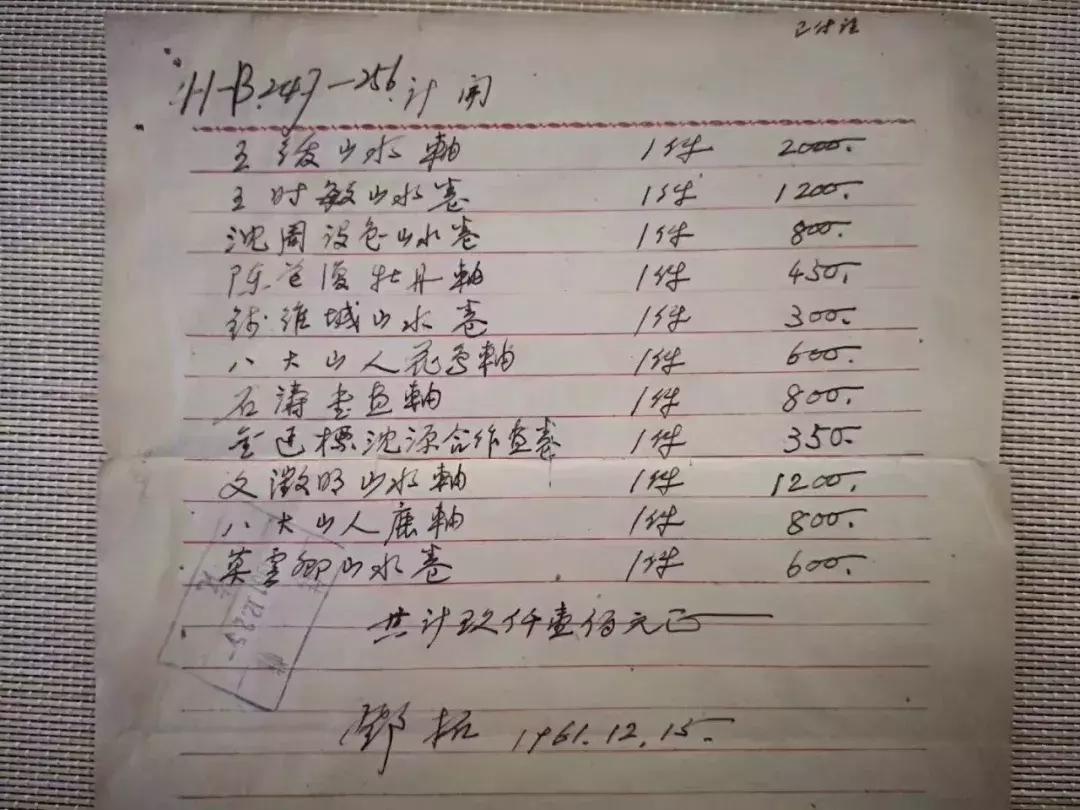 已付讫
H-B.247—256. 计开
王绂山水軸 1件 2000.
王时敏山水卷 1件 1200.
沈周设色山水卷 1件 800.
陈道復牡丹軸 1件 450.
钱维城山水卷 1件 300.
八大山人花鸟軸 1件 600.
石涛书画軸 1件 800.
金廷標沈源合作画卷 1件 350.
文徵明山水軸 1件 1200.
八大山人鹿軸 1件 800.
莫雲卿山水卷 1件 600.
共计玖仟壹佰元正
鄧拓 1961.12.15.